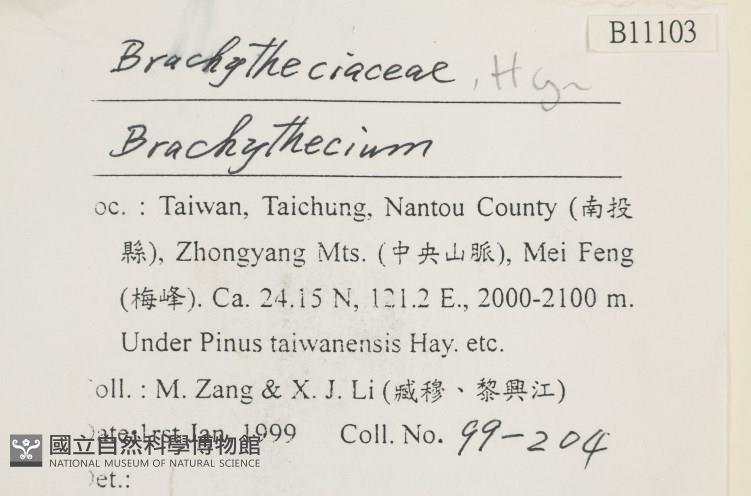 B11103
Brachytheciaceae, Hyn
Brachythecium
oc. : Taiwan, Taichung, Nantou County (南投
縣), Zhongyang Mts. (中央山脈), Mei Feng
(梅峰). Ca. 24.15 N, 121.2 E., 2000-2100 m.
Under Pinus taiwanensis Hay. etc.
oll. : M. Zang & X. J. Li (臧穆、黎興江)
Date:1rst Jan, 1999 Coll. No. 99-204
國立自然科學博物館
NATIONAL MUSEUM OF NATURAL SCIENCE
et.: